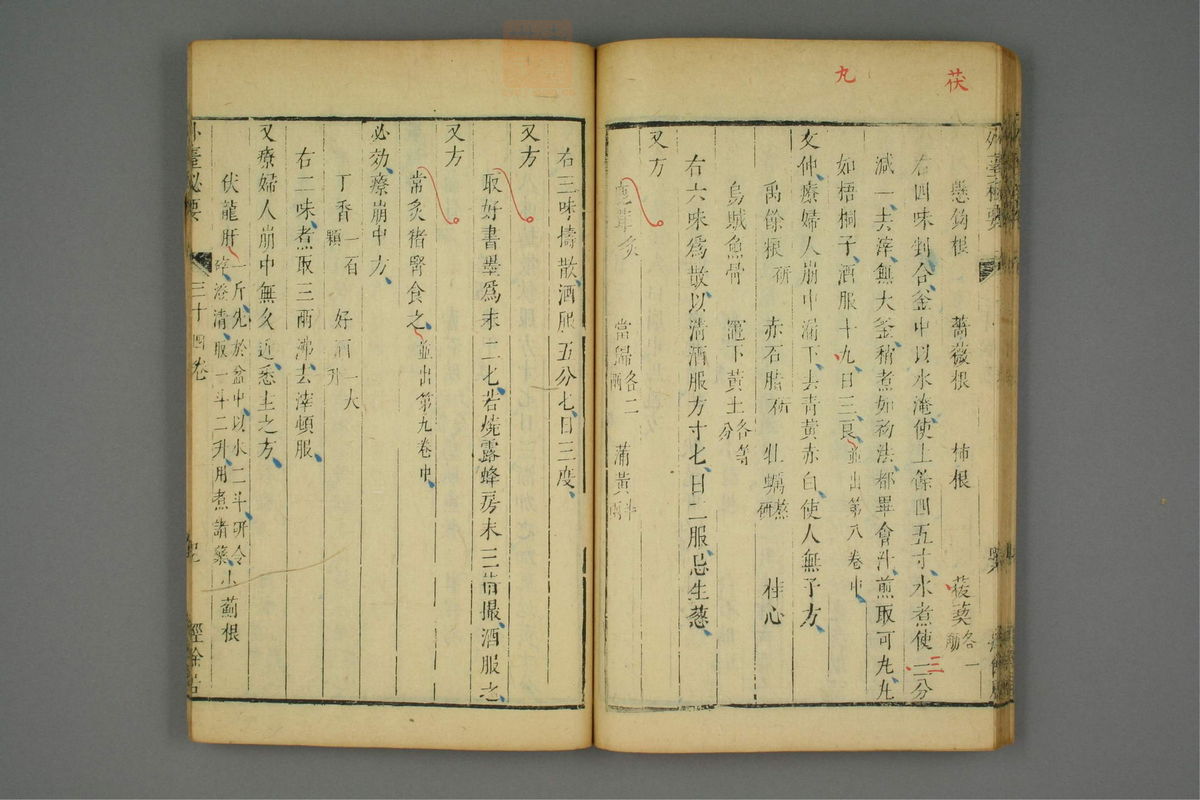 茯
丸
懸鈎根 薔薇根 柿根 菝葜各一觔
右四味剉合釜中以水淹使上餘四五寸水煮使三分
減一去滓無大釜稍煮如初法都畢會汁煎取可丸丸
如梧桐子酒服十九日三良並出第八卷中
文仲療婦人崩中漏下去青黃赤白使人無子方
禹餘糧研 赤石脂研 牡蠣熬研 桂心
烏賊魚骨 竈下黃土各等分
右六味爲散以清酒服方寸七日二服忌生蔥
又方
鹿茸炙 當歸各二兩 蒲黃半兩
右三味擣散酒服五分七日三度
又方
取好書墨爲末二七若燒露蜂房末三指撮酒服之
又方
常炙猪腎食之並出第九卷中
必効療崩中方
丁香一百顆 好酒一大升
右二味煮取三兩沸去滓頓服
又療婦人崩中無久近悉主之方
伏龍肝一斤先於盆中以水二斗研令碎澄清取一斗二升用煮諸藥 小薊根
外臺秘要
三十四卷
經餘居